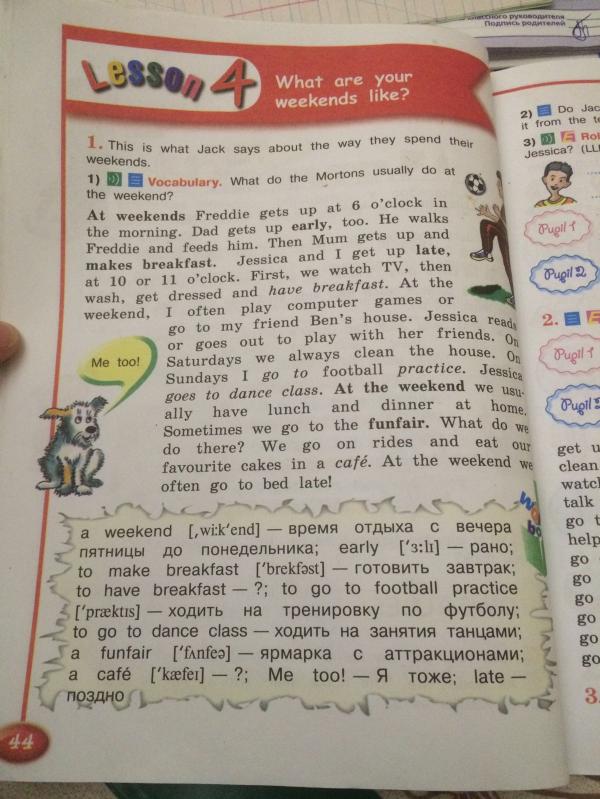 классного руководителя
Подпись родителей
Lesson 4
What are your
weekends like?
1. This is what Jack says about the way they spend their
weekends.
1) Vocabulary. What do the Mortons usually do at
the weekend?
At weekends Freddie gets up at 6 o'clock in
the morning. Dad gets up early, too. He walks
Freddie and feeds him. Then Mum gets up and
makes breakfast. Jessica and I get up late,
at 10 or 11 o'clock. First, we watch TV, then
wash, get dressed and have breakfast. At the
weekend, I often play computer games or
go to my friend Ben's house. Jessica reads
or goes out to play with her friends. On
Saturdays we always clean the house. On
Sundays I go to football practice. Jessica
goes to dance class. At the weekend we usu-
ally have lunch and dinner at home.
Sometimes we go to the funfair. What do we
do there? We go on rides and eat our
favourite cakes in a café. At the weekend we
often go to bed late!
Me too!
a weekend [ˌwiːk'end] — время отдыха с вечера
пятницы до понедельника; early ['ɜːlɪ] — рано;
to make breakfast ['brekfəst] — готовить завтрак;
to have breakfast — ?; to go to football practice
['præktɪs] — ходить на тренировку по футболу;
to go to dance class — ходить на занятия танцами;
a funfair ['fʌnfeə] — ярмарка с аттракционами;
a café ['kæfeɪ] — ?; Me too! — Я тоже; late —
поздно
44
2) Do Jac
it from the te
3) Rol
Jessica? (LL
Pupil 1
Pupil 2
2.
Pupil 1
Pupil 2
get u
clean
watch
talk
go t
help
go
go
go
go
go
go
3.